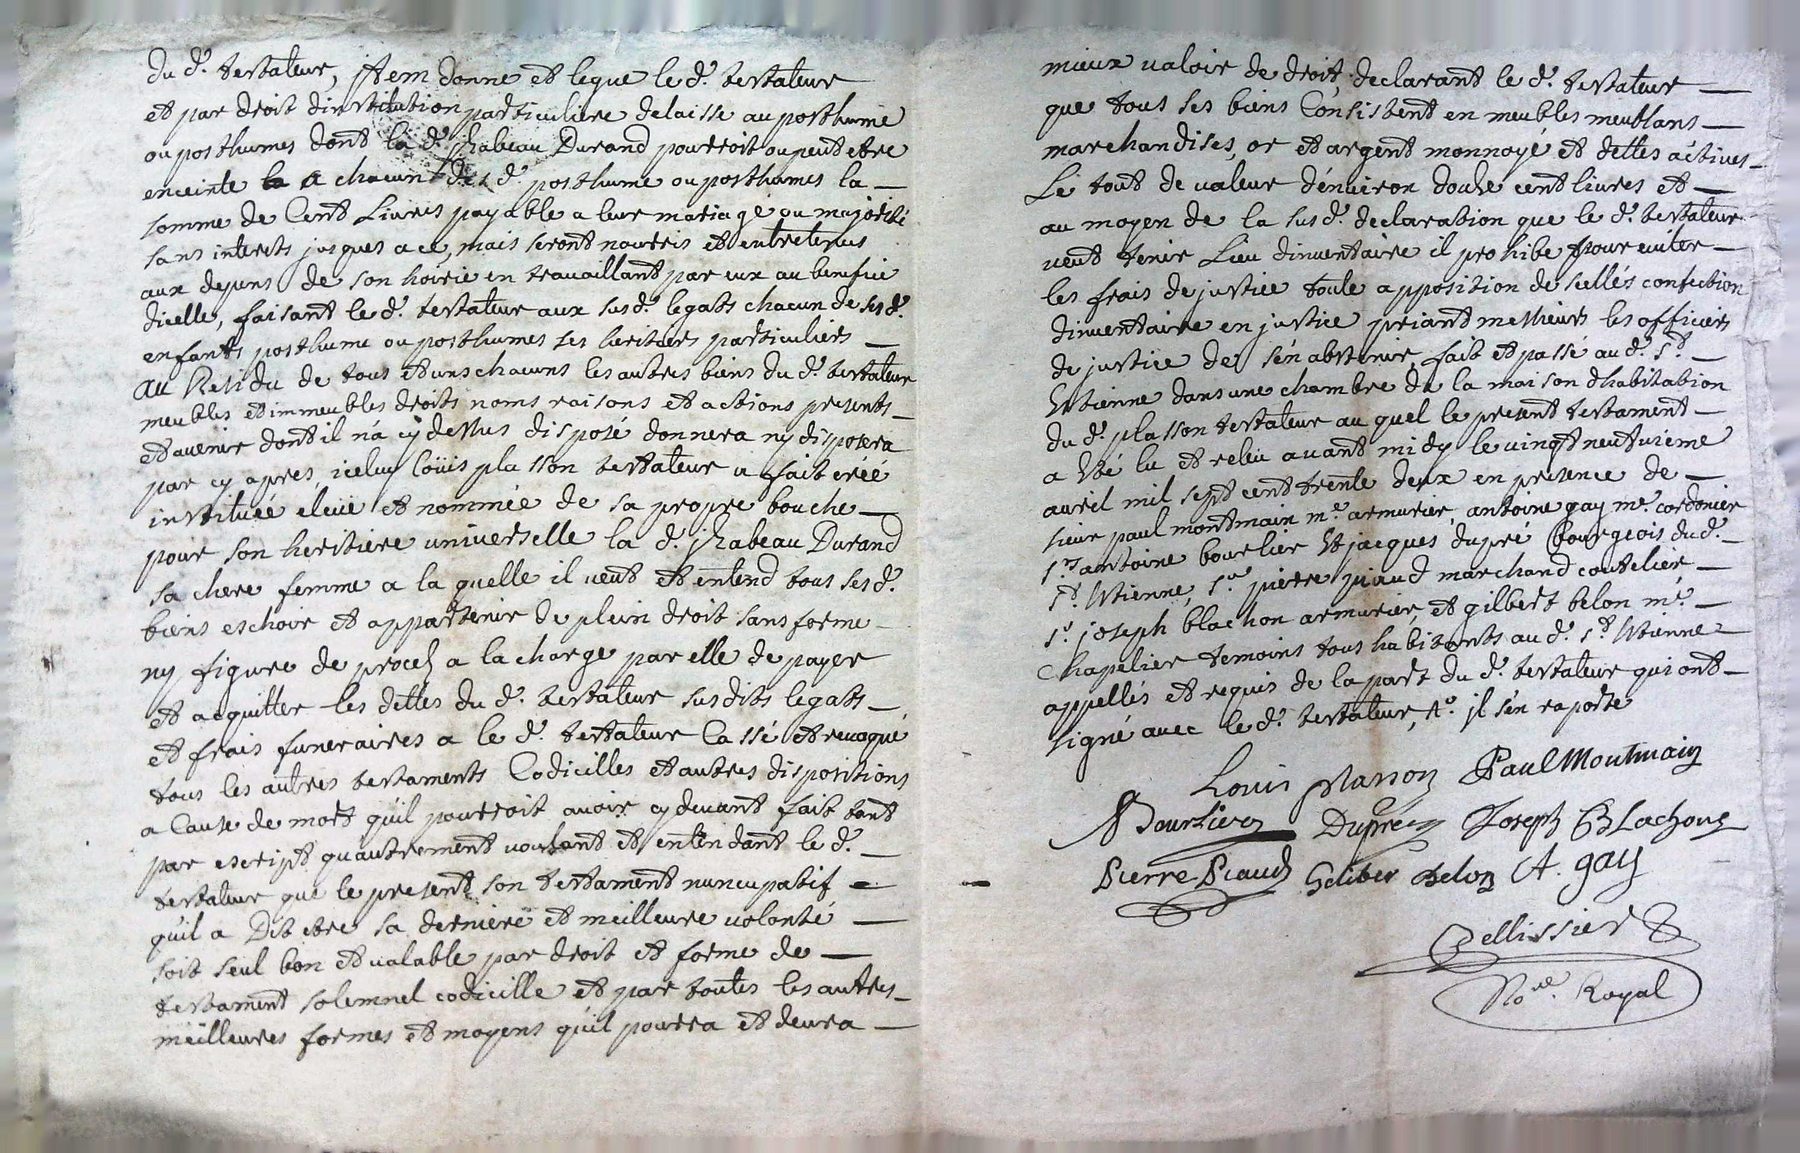 du d.t testateur, Item donne et legue le d.t testateur
et par droit dinstitution particuliere delaisse au posthume
ou posthumes dont la d.e Izabeau Durand pourroit ou peut etre
enceinte a chacun des d. posthume ou posthumes la —
somme de Cent Livres payable a leur mariage ou majorité
sans interets jusques a ce, mais seront nourris et entretenus
aux depens de son hoirie en travaillant par eux au benefice
dicelle, faisant le d.t testateur aux susd.ts legats chacun de sesd.ts
enfants posthume ou posthumes ses heritiers particuliers —
au Residu de tous et uns chacuns les autres biens du d.t testateur
meubles et immeubles droits noms raisons et actions presents —
et avenir dont il n'a cy dessus disposé donnera ny disposera
par cy apres, iceluy Loüis plasson testateur a fait créé
instituéé eleüe et nommée de sa propre bouche —
pour son heritiere universelle la d.e Izabeau Durand
sa chere femme a la quelle il veut et entend tous ses d.ts
biens eschoir et appartenir de plein droit sans forme —
ny figure de procés a la charge par elle de payer
et acquitter les dettes du d.t testateur susdits legats —
et frais funeraires a le d.t testateur Cassé et revoqué
tous les autres testaments Codicilles et autres dispositions
a Cause de mort qu'il pourroit avoir cy devant fait tant
par escript qu'autrement voulant et entendant le d.t —
testateur que le present son testament nuncupatif —
qu'il a Dit etre sa derniere et meilleure volonté —
soit seul bon et valable par droit et forme de —
testament solemnel codicille et par toutes les autres —
meilleures formes et moyens qu'il pourra et devra —
mieux valoir de droit, declarant le d.t testateur —
que tous ses biens Consistent en meubles meublans —
marchandises, or et argent monnoyé et dettes actives —
Le tout de valeur d'environ douze cent livres et —
au moyen de la susd.e declaration que le d.t testateur
veut tenir Lieu dinventaire il prohibe pour eviter —
les frais de justice toute apposition de scellés confection
dinventaire en justice priant messieurs les officiers
de justice de s'en abstenir, fait et passé au d.t S.t —
Etienne dans une chambre de la maison dhabitation
du d.t plasson testateur au quel le present testament —
a eté lu et releu avant midy le vingt neufvieme
avril mil sept cent trente deux en presence de —
sieur paul montmain m.e armurier, antoine gay m.e cordonier
s.rs antoine bourlier et jacques dupré bourgeois du d.t —
S.t Etienne, s.r pierre piaud marchand coutelier, —
s.r joseph blachon armurier, et gilbert belon m.e —
chapelier temoins tous habitants au d.t S.t Etienne —
appellés et requis de la part du d.t testateur qui ont —
signé avec le d.t testateur, il s'en raporte
Louis plasson Paul Montmain
A Bourlier Dupré Joseph Blachong
Pierre Piaud Gilber Belon A. gay
Pellissier
No.re Royal